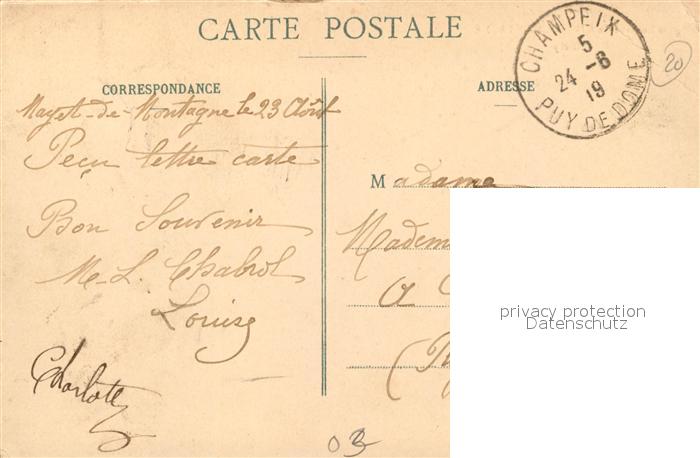 CARTE POSTALE
CHAMPEIX
5
24 -8
19
PUY DE DOME
20
CORRESPONDANCE
ADRESSE
Mayet-de-Montagne le 23 Août
Reçu lettre carte
Bon Souvenir
M-L. Chabrol
Louise
Charlotte
Madame
Madem
privacy protection
Datenschutz
03